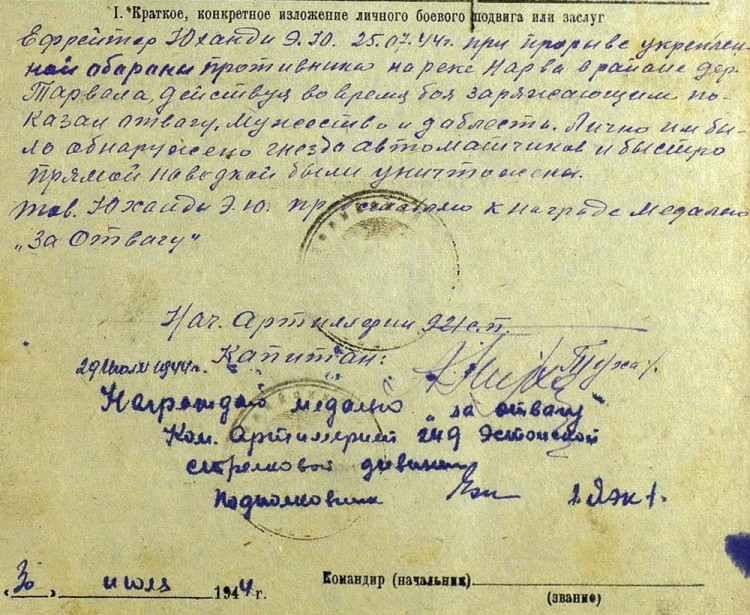 I. Краткое, конкретное изложение личного боевого подвига или заслуг
Ефрейтор Юханди Э.Ю. 25.07.44г. при прорыве укреплен-
ной обараны противника на реке Нарва в районе дер.
Тарвала, действуя во время боя заряжающим по-
казал отвагу, мужество и даблесть. Лично им бы-
ло обнаружено гнезда автоматчиков и быстро
прямой наводкой были уничтожены.
тов. Юханди Э.Ю. представляю к награде медалью
„За Отвагу"
Нач. Артиллерии 921 с.п.
Капитан:
29 июля 1944г.
Награждаю медалью „за отвагу"
Ком. Артиллерией 249 Эстонской
стрелковой дивизии
Подполковник /Яэк/.
„30„ июля 1944 г.
Командир (начальник)
(звание)